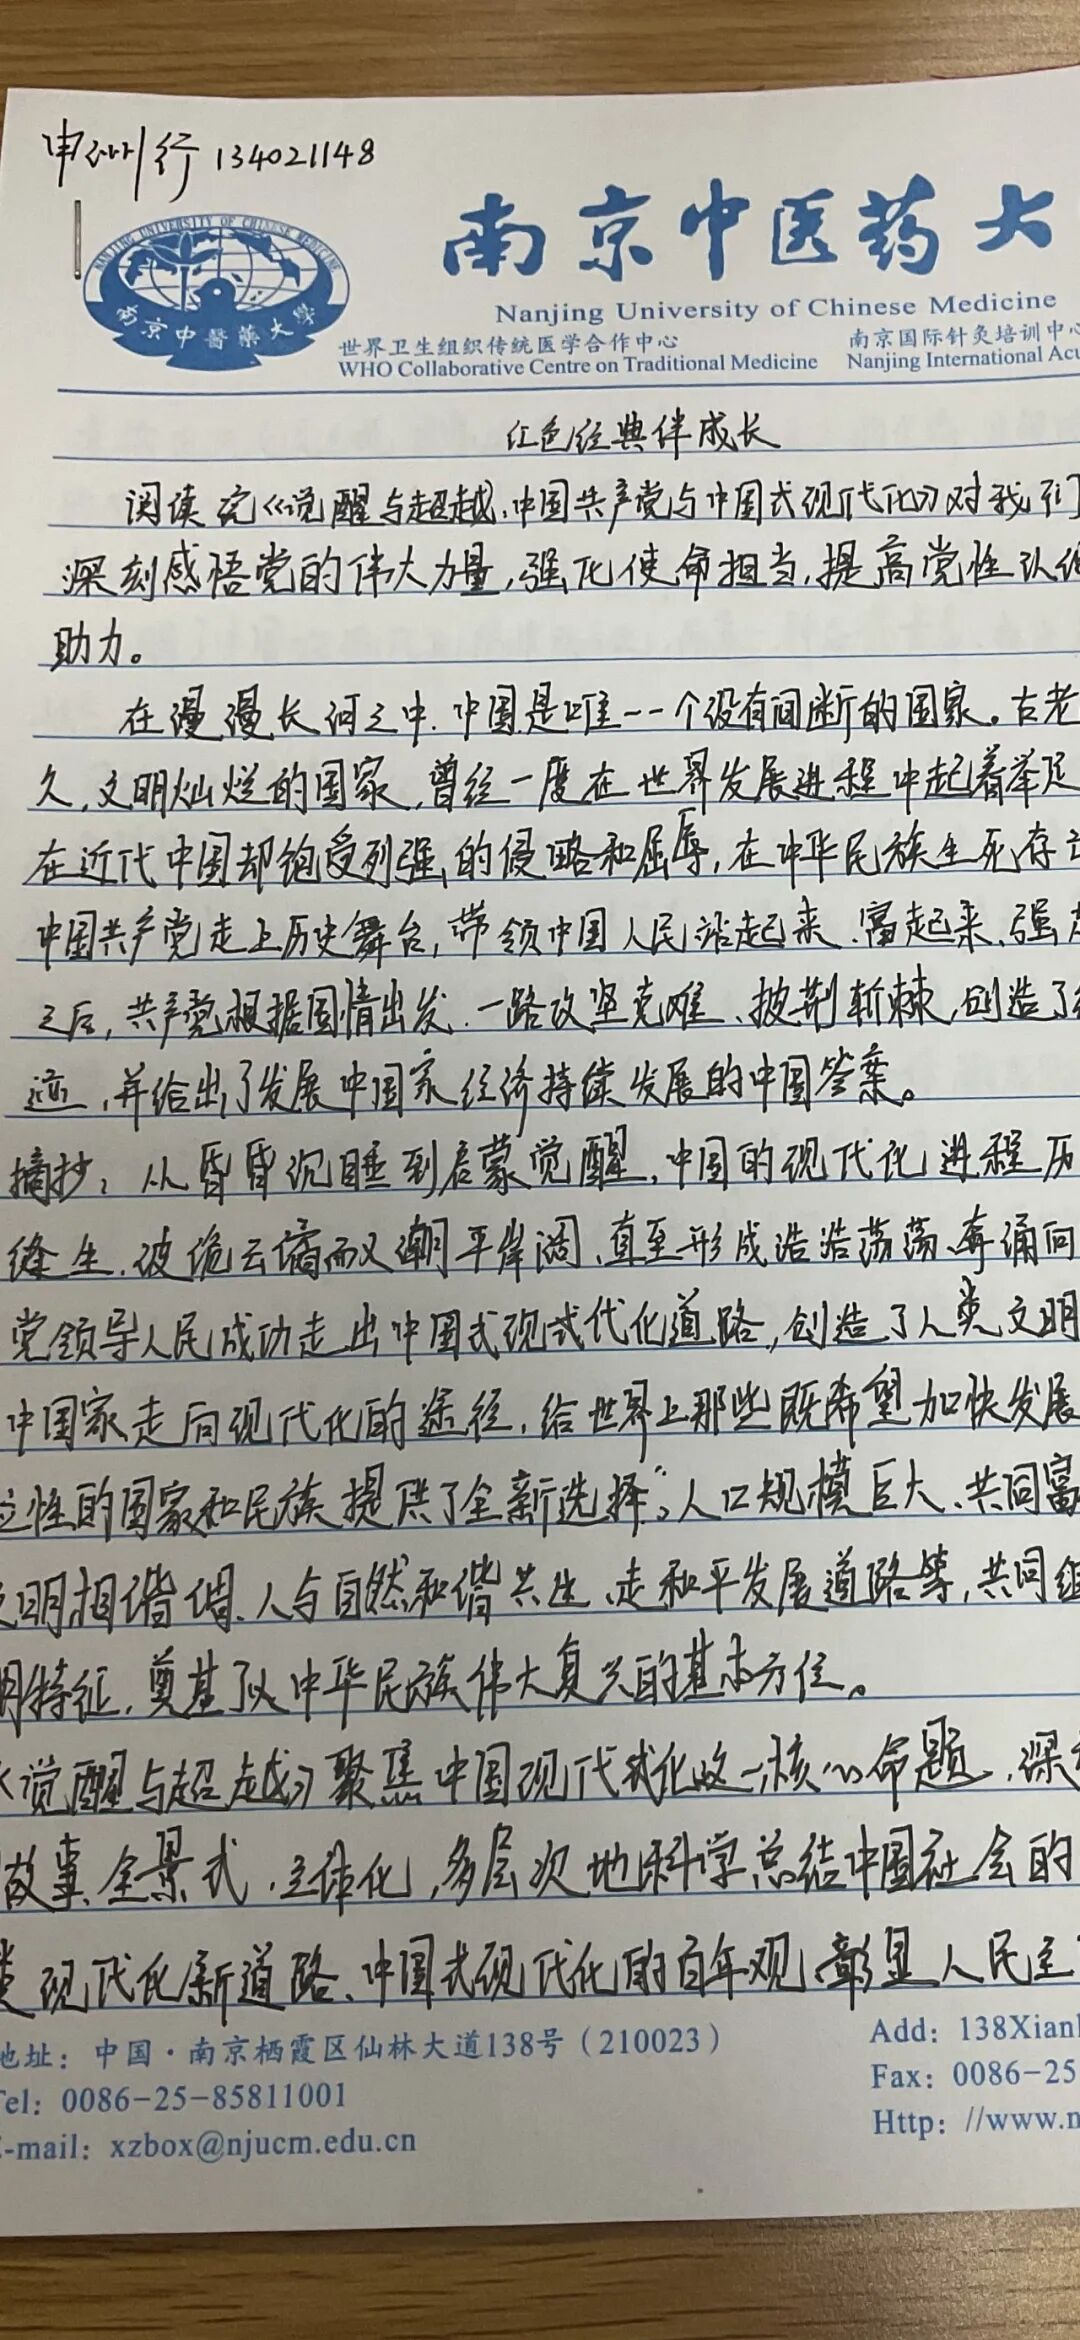 申洲行 134021148
NANJING UNIVERSITY OF CHINESE MEDICINE
南京中醫藥大學
南京中医药大
Nanjing University of Chinese Medicine
世界卫生组织传统医学合作中心 南京国际针灸培训中心
WHO Collaborative Centre on Traditional Medicine Nanjing International Acu
红色经典伴成长
阅读完《觉醒与超越,中国共产党与中国式现代化》对我们
深刻感悟党的伟大力量,强化使命担当,提高党性认
助力。
在漫漫长河之中.中国是唯一一个没有间断的国家。古老
久,文明灿烂的国家,曾经一度在世界发展进程中起着举足
在近代中国却饱受列强的侵略和屈辱,在中华民族生死存亡
中国共产党走上历史舞台,带领中国人民站起来、富起来、强
之后,共产党根据国情出发.一路攻坚克难、披荆斩棘,创造了
迹,并给出了发展中国家经济持续发展的中国答案。
摘抄:从昏昏沉睡到启蒙觉醒,中国的现代化进程历
缝生.波诡云谲而又潮平岸阔、直至形成浩浩荡荡、奔涌向
党领导人民成功走出中国式现式代化道路,创造了人类文明
中国家走向现代化的途径,给世界上那些既希望加快发展
立性的国家和民族提供了全新选择",人口规模巨大、共同富
文明相谐调、人与自然和谐共生、走和平发展道路等,共同组
明特征,奠基了以中华民族伟大复兴的基本方位。
《觉醒与超越》聚焦中国现代式化这一核心命题,深
故事、全景式.立体化,多层次地科学总结中国社会的
类现代化新道路、中国式现代化的百年观、彰显人民主
地址:中国·南京栖霞区仙林大道138号(210023) Add: 138Xianl
Tel: 0086-25-85811001 Fax: 0086-25
E-mail: xzbox@njucm.edu.cn Http: //www.n